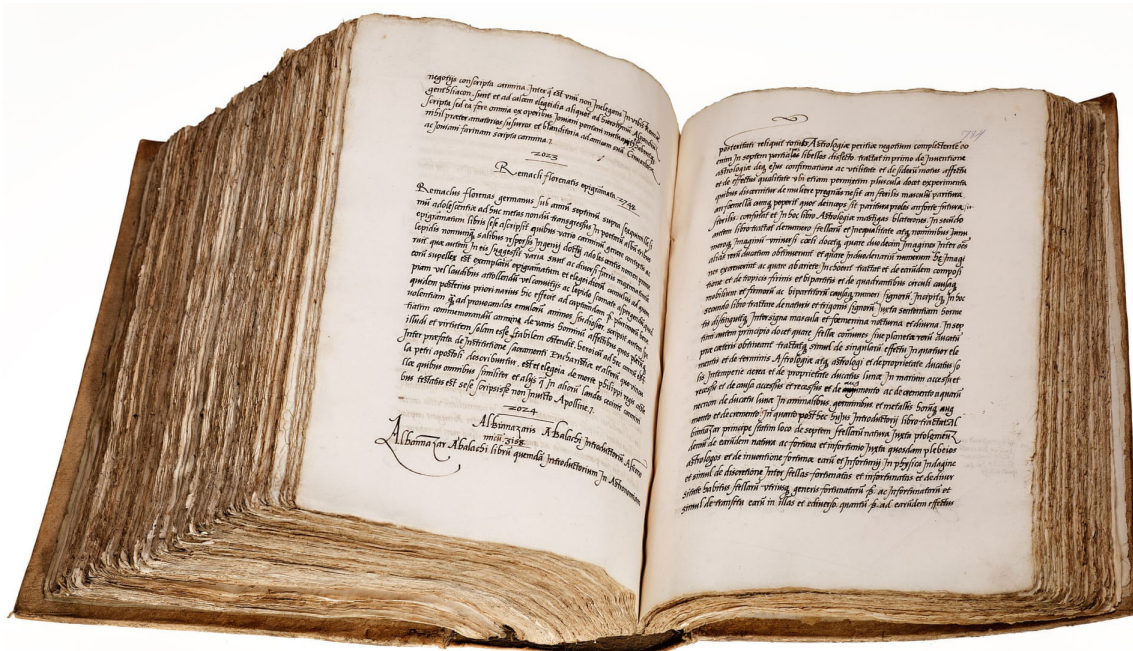 negotijs conscripta carmina Inter q̃ est vnũ non Inelegans In
gentbliacon. sunt et ad calcem elegeidia aliquot ad
scripta sed ea fere omnia ex operibus Joviani pontani
nihil præter amatorios susurros et blanditeria ad amicam suã
ac Joviani farinam scripta carmina.
2023
Remacli florenatis epigrãmata: 2744
Remaclus florenas germanus sub annũ septimũ supra
mũ adolescentiæ ad huc metas nondũ transgressus In poetarũ albũ tribus
epigrãmatum libris sese ascripsit quibus vario carminũ genere contextis ac
lepidis nonnunq̃ salibus respersis Ingenij dotẽ adolescentis nomen
ruit quæ autem In eis suggessit varia sunt ac diversi farie
piam vel laudibus attollendũ vel convitijs ac lepido scomate aspergendũ
quidem posterius priori narius hic effecit ad captandam
volentiam q̃ ad provocandos emulorũ animos studiosior. scripsit autem
tiatim commemorandũ carmina de varijs hominũ affectibus quos
illudi et virtutem solam esse stabilem ostendit. heroica ad hec
Inter præfata de Institutione sacramenti Eucharistiæ et alterũ quo
la petri apostoli describuntur. est et elegeia de morte philippi regis
llæ quibus omnibus similiter et alijs q̃ In aliorũ laudes cecinit
bus testatus est sese scripsisse non Invito Apolline.
2024
Albũnazaris Abalachi Introductoriũ
micũ. 3158
Albũnazar Abalachi librũ quendã Introductorium In Astronomiam
734
posteritati reliquit totius Astrologiæ peritiæ negotium complectente
enim In septem partiales libellos dissecto. tractat in primo de Inventione
astrologiæ deq̃ ejus confirmatione ac vtilitate et de siderũ motus affectu
et de effectus qualitate vbi etiam permixtim pluscula docet experimenta
quibus discernitur de muliere pregnãs ne sit an sterilis masculũ paritura
an fœmellã cumq̃ peperit quot deinceps sit paritura proles an forte futura
sterilis. confutat et In hoc libro Astrologiæ mastigas blaterones. In secũdo
autem libro tractat de numero stellarũ et Inequalitate atq̃ nominibus
Imaginũ vniversi cœli docetq̃ quare duodecim Imagines Inter
alias rerũ ducatum obtinuerint et quare In duodenariũ numerum hæ Imagi
nes excreverint ac quare ab ariete Inchoent tractat et de earũdem composi
tione et de tropicis firmis et bipartitis et de quadrantibus circuli causaq̃
mobilium et firmorũ ac bipartitorũ causaq̃ numeri signorũ Incipitq̃ In hoc
secundo libro tractare de naturis et trigonis signorũ Juxta sententiam herme
tis distinguitq̃ Inter signa mascula et fœminina nocturna et diurna. In
tertij autem principio docet quare stellæ communes sive planetæ rerũ ducatũ
præ cæteris obtineant tractatq̃ simul de singularũ effectu In quatuor ele
mentis et de terminis Astrologiæ atq̃ astrologi et de proprietate ducatus so
lis Intemperie aerea et de proprietate ducatus lunæ In marium accessu et
recessu et de causa accessus et recessus et de augmento ac decremento aquarũ
necnon de ducatu lunæ In animalibus, germinibus et metallis horũq̃ aug
mento et decremento. In quarto post hec hujus Introductorij libro tractat Al
bũnazar principe statim loco de septem stellarũ natura Juxta ptolemeũ
deinũ de earũdem natura ac fortuna et infortunio Juxta quosdam plebeios
astrologos et de inventione fortunæ earũ et Infortunij In physica Indagine
et simul de discretione Inter stellas fortunatas et infortunatas et de
habitus stellarũ vtriusq̃ generis fortunatarũ ac Infortunatarũ et
simul de transitu earũ in illas et ediverso. quantũ ad earũdem effectus